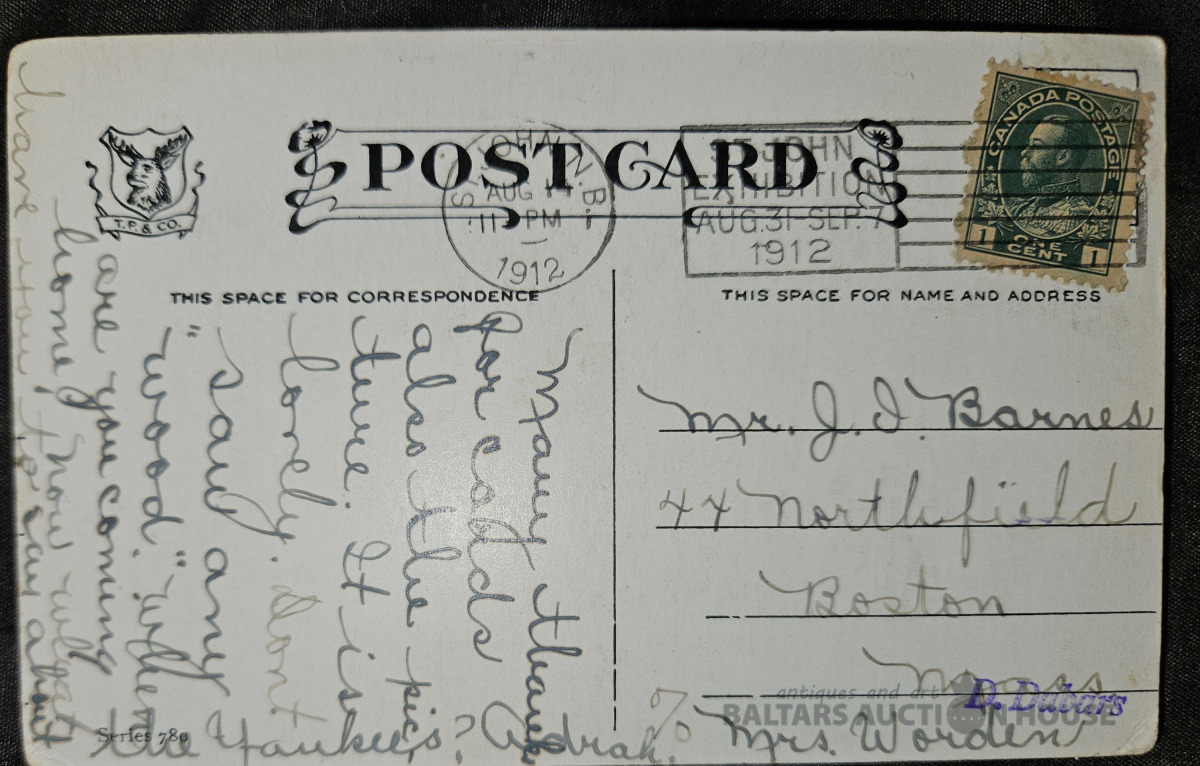 POST CARD
T.P. & CO.
ST. JOHN, N.B.
AUG 14
11 PM
1912
ST. JOHN
EXHIBITION
AUG.31-SEP.7
1912
CANADA POSTAGE
1 ONE CENT 1
THIS SPACE FOR CORRESPONDENCE
THIS SPACE FOR NAME AND ADDRESS
Many thanks
for cards
also the pic
ture. It is
lovely. Dont
"saw any
wood." When
are you coming
home? Now what
have you to say about
the Yankees?
Mr. J. I. Barnes
44 Northfield
Boston
Mass
% Mrs. Worden
Series 780
antiques and art
BALTARS AUCTION HOUSE
D. Dubars